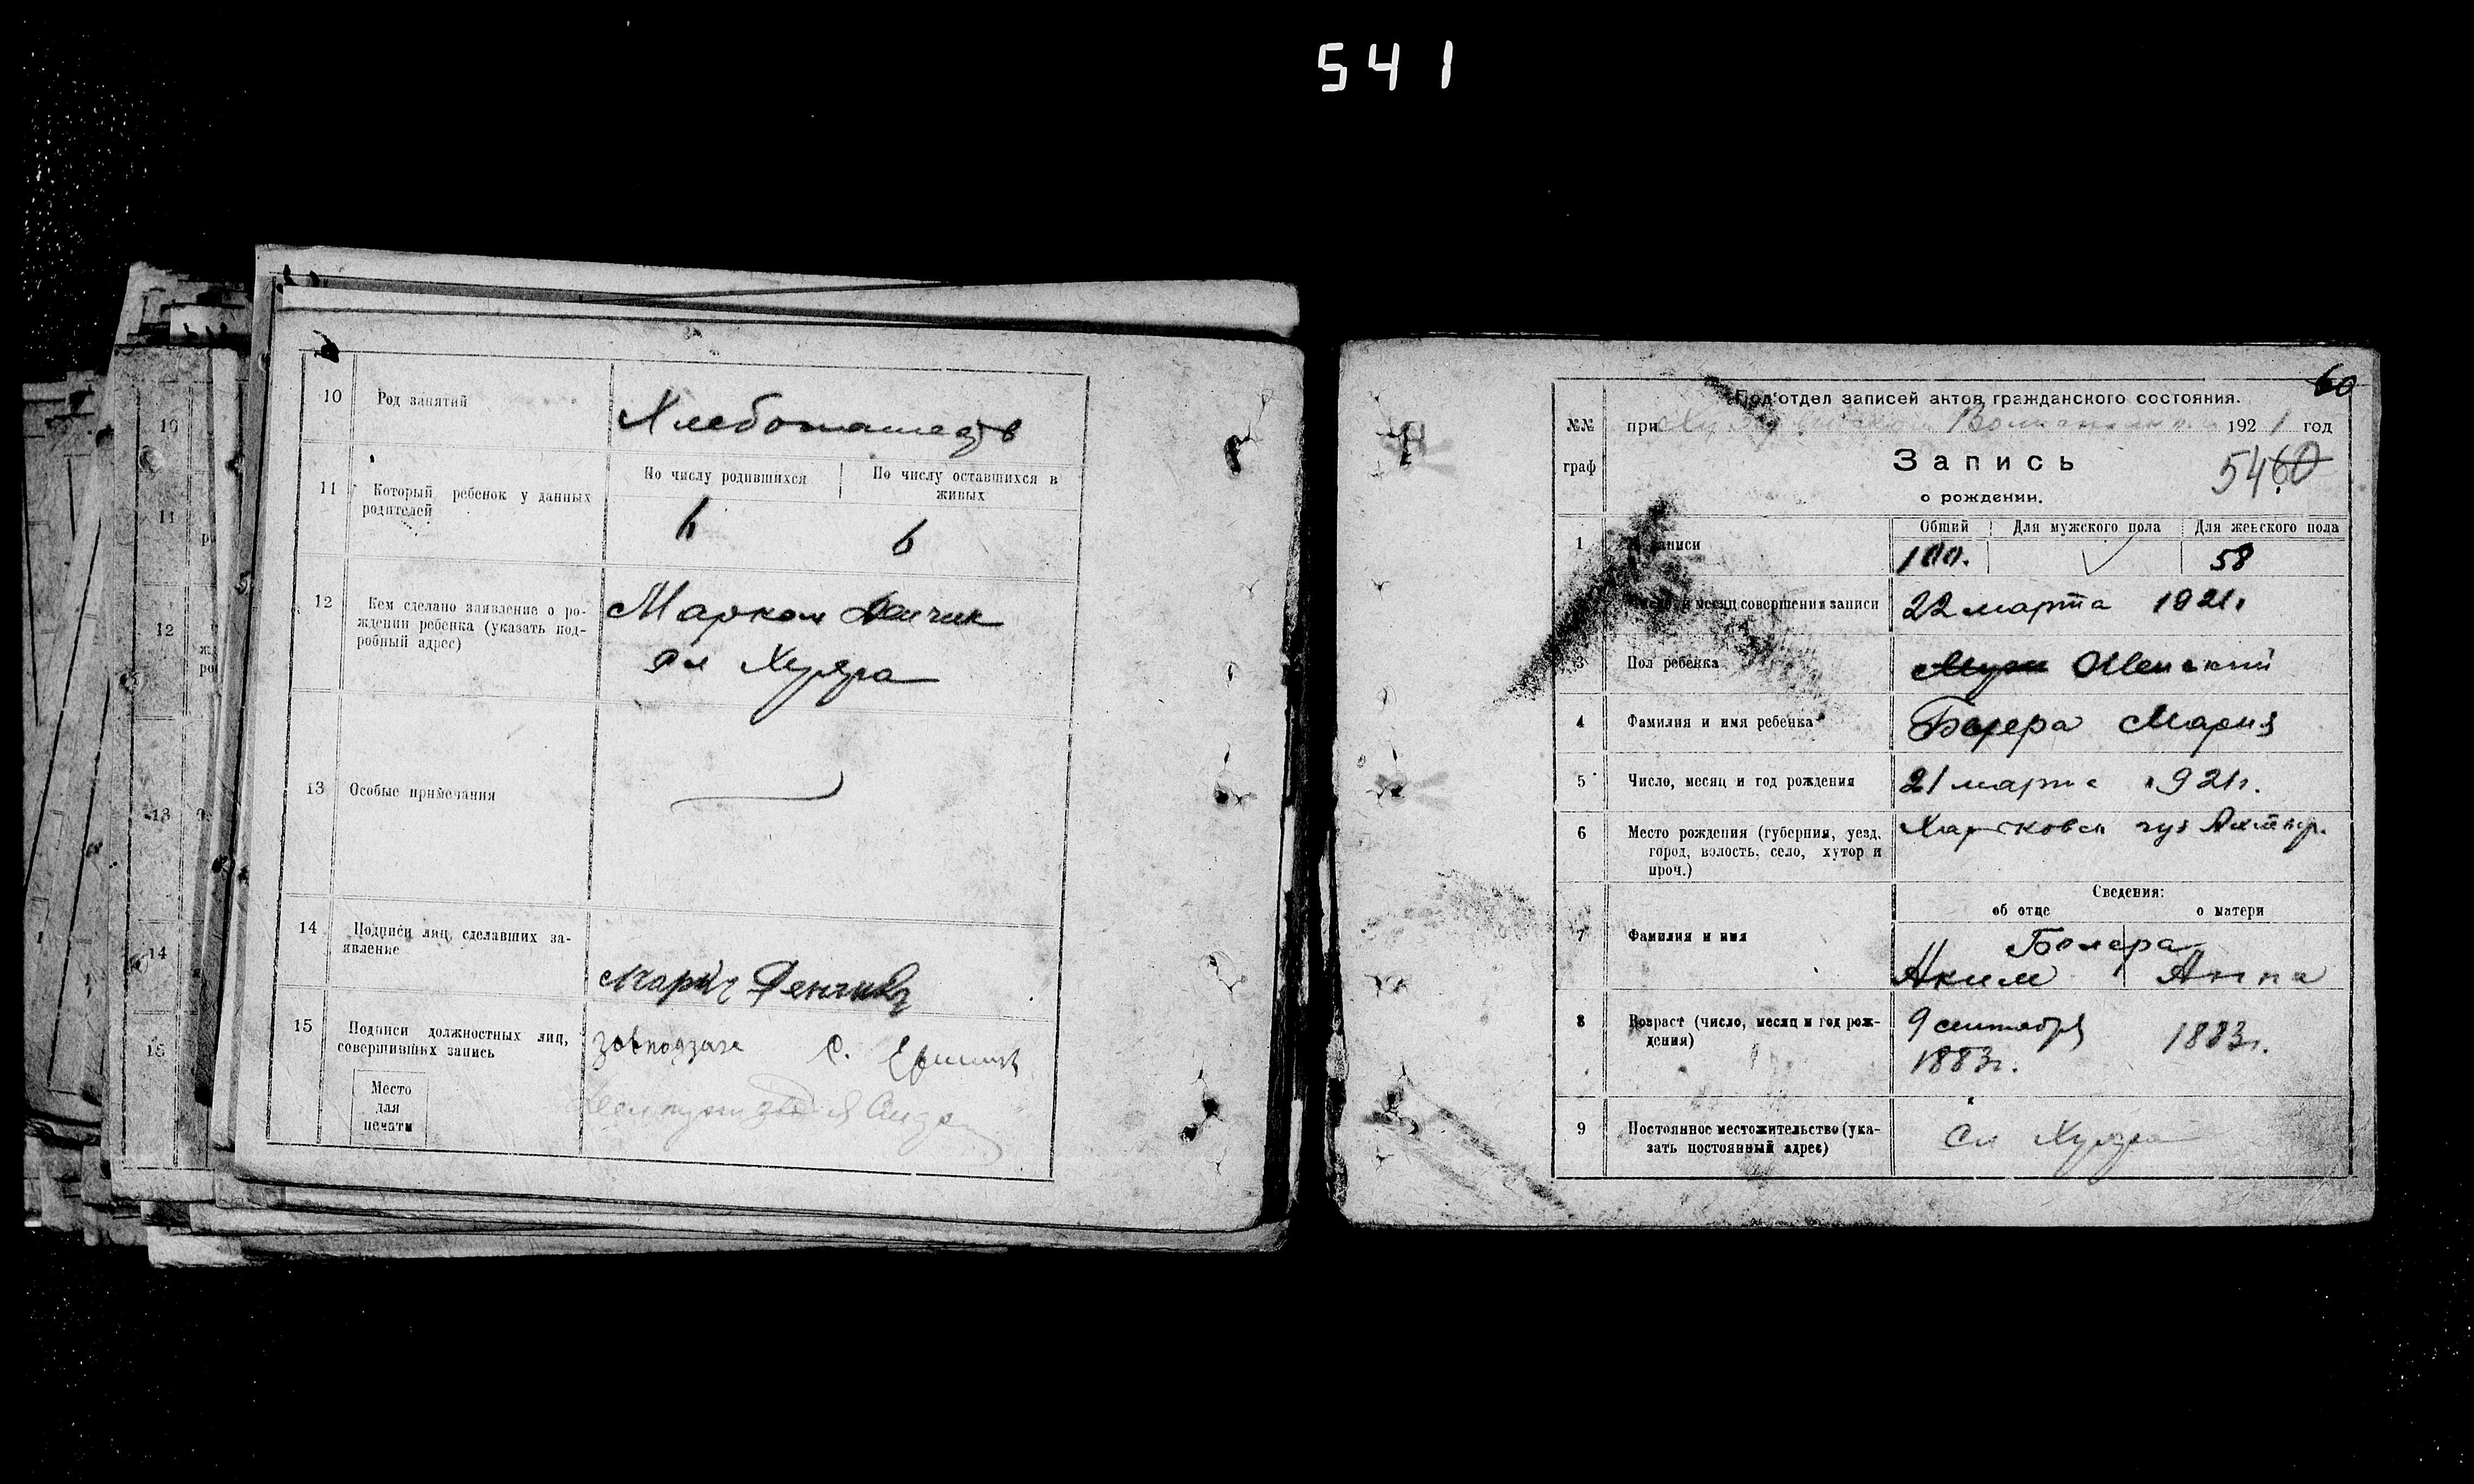 541
10 Род занятий
Хлебопашедв
11 Который ребенок у данных родителей
По числу родившихся По числу оставшихся в живых
6 6
12 Кем сделано заявление о ро-
ждении ребенка (указать под-
робный адрес)
Марком
сл Хухра
13 Особые примечания
14 Подписи лиц, сделавших за-
явление
15 Подписи должностных лиц,
совершивших запись
С.
Место
для
печати
60
Под'отдел записей актов гражданского состояния.
№№ при 1921 год
граф Запись
5460
о рождении.
Общий Для мужского пола Для женского пола
1 записи
100. 58
месяц совершения записи 22 марта 1921г
3 Пол ребенка Женский
4 Фамилия и имя ребенка Мария
5 Число, месяц и год рождения 21 марта 1921г.
6 Место рождения (губерния, уезд,
город, волость, село, хутор и
проч.)
Харьковск губ Ахтыр.
Сведения:
об отце о матери
7 Фамилия и имя
Аким Анна
8 Возраст (число, месяц и год рож-
дения)
9 сентября
1883г. 1883г.
9 Постоянное местожительство (ука-
зать постоянный адрес)
Сл Хухра